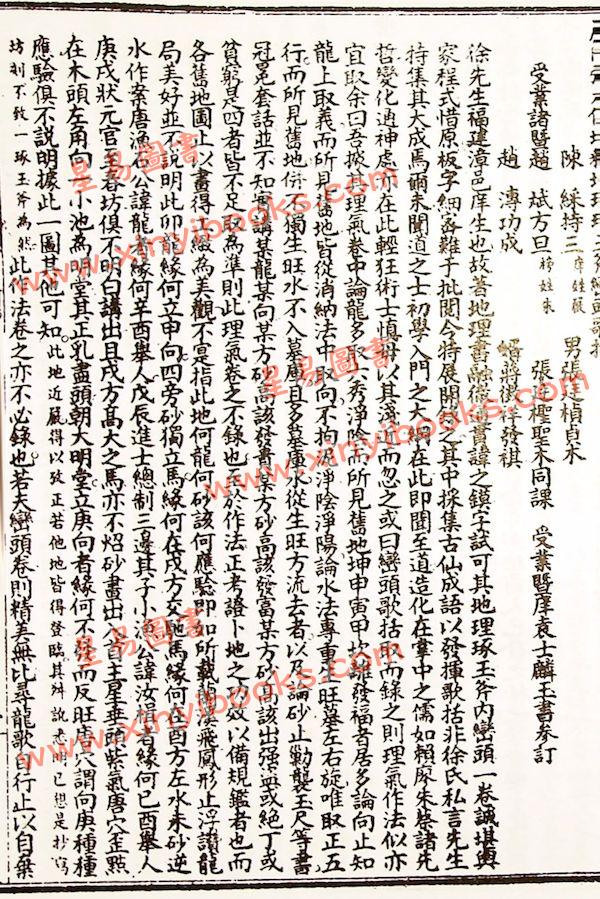 陳 綵持三 庠姓嚴 男張廷楨貞木
受業諸暨趙 斌方旦 榜姓朱 張廷 聖木同課 受業暨庠袁士麟玉書參訂
趙 漙功成 婿蔣 祥發祺
徐先生福建漳邑庠生也故著地理書融徹 貫諱之鏌字試可其地理琢玉斧內巒頭一卷誠堪輿
家程式惜原板字細 難于批閱今特展開 之其中採集古仙成語以發揮歌括非徐氏私言先生
待集其大成馬爾未聞道之士初學入門之大綱在此即聞至道造化在掌中之儒如賴廖朱蔡諸先
哲變化通神處亦在此輕狂術士慎毋以其淺近而忽之或曰巒頭歌括取而錄之則理氣作法似亦
宜取余曰吾披其理氣卷中論龍多取六秀淨陰而所見舊地坤申寅甲坎離發福者居多論向止知
龍上取義而所見舊地皆從消納法中取向不拘忌淨陰淨陽論水法專重生旺墓左右旋唯取正五
行而所見舊地併不獨生旺水不入墓庫且多墓庫水從生旺方流去者以及論砂止勦襲玉尺等書
冠冕套話並不知專講某龍某向某方砂高該發貴某方砂高該發富某方砂高該出強 或絕丁或
貧窮是四者皆不足取為準則此理氣卷之不錄也至於作法正考證卜地之功效以備規鑑者也而
各舊地圖止以畫得工緻為美觀不寔指此地何龍何砂該何應驗即如所載 漢飛鳳形止浮讚龍
局美好並不說明此卯龍緣何立申向四旁砂獨立馬緣何在戌方交馳馬緣何在酉方左水來砂逆
水作案唐漁石公諱龍者緣何辛酉舉人戊辰進士總制三邊其子小漁公諱汝楫者緣何己酉舉人
庚戌狀元官至春坊俱不明白講出且戌方高大之馬亦不炤砂畫出入首土星垂頭紫氣唐穴歪點
在木頭左角向一小池為明堂其正乳盡頭朝大明堂立庚向者緣何不發而反旺唐穴謂向庚種種
應驗俱不說明據此一圖其他可知 此地近嚴得以攷正若他地皆得登臨其舛訛悉明已想是抄寫
坊刻不致一琢玉斧為然 此作法卷之亦不必錄也若夫巒頭卷則精美無比尋龍歌自行止以自棄
星易圖書
www.xinyibooks.com
星易圖書
www.xinyibooks.com
星易圖書
www.xinyibooks.com